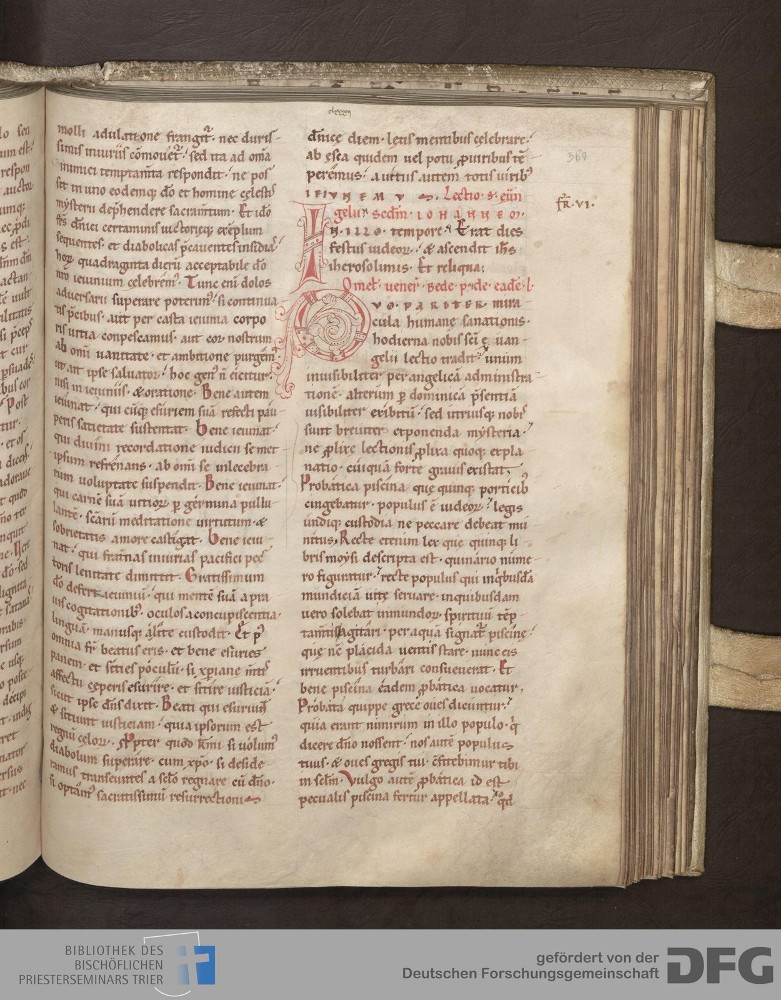 molli adulatione frangit᷑. nec duris-
simis iniuriis cōmouet᷑. sed ita ad om̄ia
inimici temptam̄ta respondit. ne pos
sit in uno eodemq; dō et homine celesti
mysterii dep̄hendere sacram̄tum. Et idō
fr̄s dn̄ici certaminis uictorieq; exēplum
sequentes. et diabolicas p̄cauentes insidias.
hoꝝ quadraginta dierū acceptabile dō
nr̄o ieiunium celebrem᷒. Tunc eni dolos
aduersarii superare poterim᷒. si continua
tis p̄cibus. aut per casta ieiunia corpo
ris uitia conpescamus. aut cor nostrum
ab omi uanitate. et ambitione purgem᷒.
ut ait ipse saluator. hoc gen᷒ n̄ eicitur.
nisi in ieiuniis. & oratione. Bene autem
ieiunat. qui cūq; esuriem suā refecti pau
peris satietate sustentat. Bene ieiunat.
qui diuini recordatione iudicii semet
ipsum refrenans. ab omi se inlecebra
rum uoluptate suspendit. Bene ieiunat.
qui carnē suā uitioꝝ p germina pullu
lantē. scārū meditatione uirtutum. &
sobrietatis amore castigat. Bene ieiu
nat. qui frat̄nas iniurias pacifici pec
toris lenitate dimittit. Gratissimum
dō defert ieiuniū. qui mentē suā a pra
uis cogitationib᷒. oculos a concupiscentia.
linguā. manusq; custodit. Et p᷒
omnia fr̄ beatus eris. et bene esuries
panem. et sities poculū. si xp̄iane m̄tis
affectu ceperis esurire. et sitire iusticiā.
sicut ipse dn̄s dixit. Beati qui esuriunt
& sitiunt iusticiam. quia ipsorum est
regnū celoꝝ. Propter quod k̄mi. si uolum᷒
diabolum superare. cum xp̄o. si deside-
ramus transeuntes a sc̄lo regnare cū dn̄o.
si optam᷒ sacratissimū resurrectionis
dn̄ice diem. letis mentibus celebrare.
ab esca quidem uel potu p uiribus tē-
peremus. a uitiis autem totis uirib᷒
IEIVNEMVS. Lectio s. eūn
gelii sec̄dm. IOHANNEM.
IN ILLO tempore. Erat dies
festus iudeoꝝ. & ascendit ih̄s
iherosolimis. Et reliqua.
FR. VI.
Omel. uener. Bede p̄. de eadē. l.
QVO PARITER mira
cula humane sanationis.
hodierna nobis sc̄i euan-
gelii lectio tradit᷑. unum
inuisibiliter per angelicā administra-
tionē. alterum p dominicā p̄sentiā
uisibiliter exibitū. sed utriusq; nob᷒
sunt breuiter exponenda mysteria.
ne plixe lectionis plixa quoq; expla
natio. cuiquā forte grauis existat.
Probatica piscina que quinq; porticib᷒
cingebatur. populus ē iudeoꝝ. legis
undiq; custodia ne peccare debeat mu
nitus. Recte etenim lex que quinq; li
bris moysi descripta est. quinario nume-
ro figuratur. recte populus qui in q̄busdā
mundiciā uite seruare. in quibusdam
uero solebat inmundoꝝ spirituū tēp-
tam̄tis agitari. per aquā signat᷑ piscine.
que nc̄ placida uentis stare. nunc eis
irruentibus turbari consueuerat. Et
bene piscina eadem pbatica uocatur.
Probata quippe grece oues dicuntur.
quia erant nimirum in illo populo. q̄
dicere dn̄o nossent. nos aute populus
tuus. & oues gregis tui. c̄fitebimur tibi
in sclm̄. Vulgo autē pbatica id est
pecualis piscina fertur appellata. q̄d
BIBLIOTHEK DES
BISCHÖFLICHEN
PRIESTERSEMINARS TRIER
gefördert von der
Deutschen Forschungsgemeinschaft
DFG